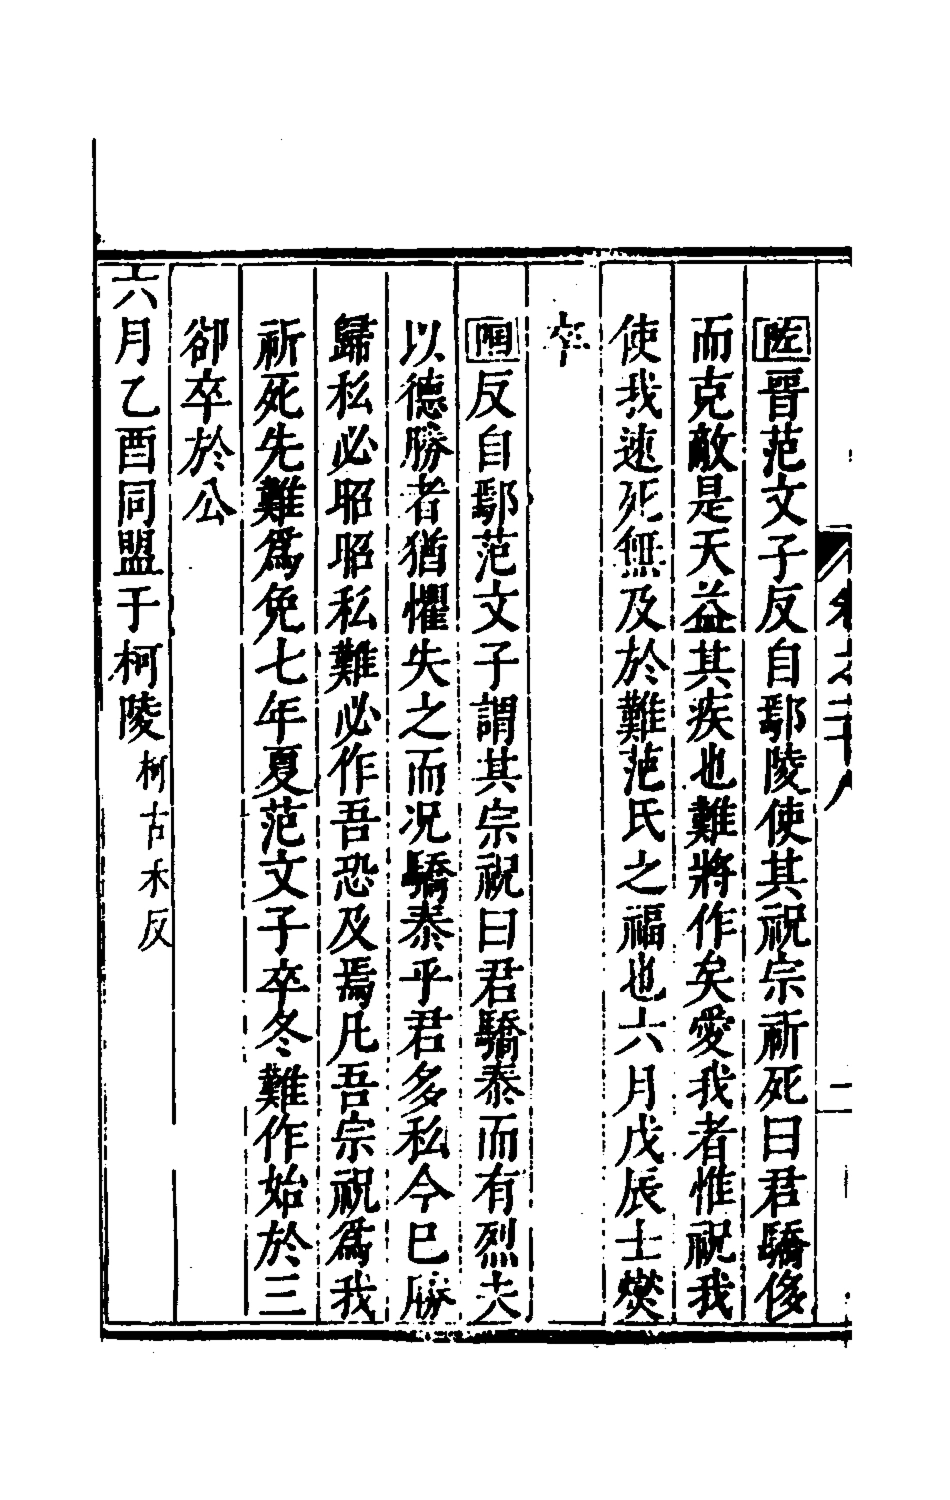 卷之二十八
一
左晉范文子反自鄢陵使其祝宗祈死曰君驕侈
而克敵是天益其疾也難將作矣愛我者惟祝我
使我速死無及於難范氏之福也六月戊辰士燮
卒
國反自鄢范文子謂其宗祝曰君驕泰而有烈夫
以德勝者猶懼失之而况驕泰乎君多私今已勝
歸私必昭昭私難必作吾恐及焉凡吾宗祝爲我
祈死先難爲免七年夏范文子卒冬難作始於三
郤卒於公
六月乙酉同盟于柯陵柯古木反